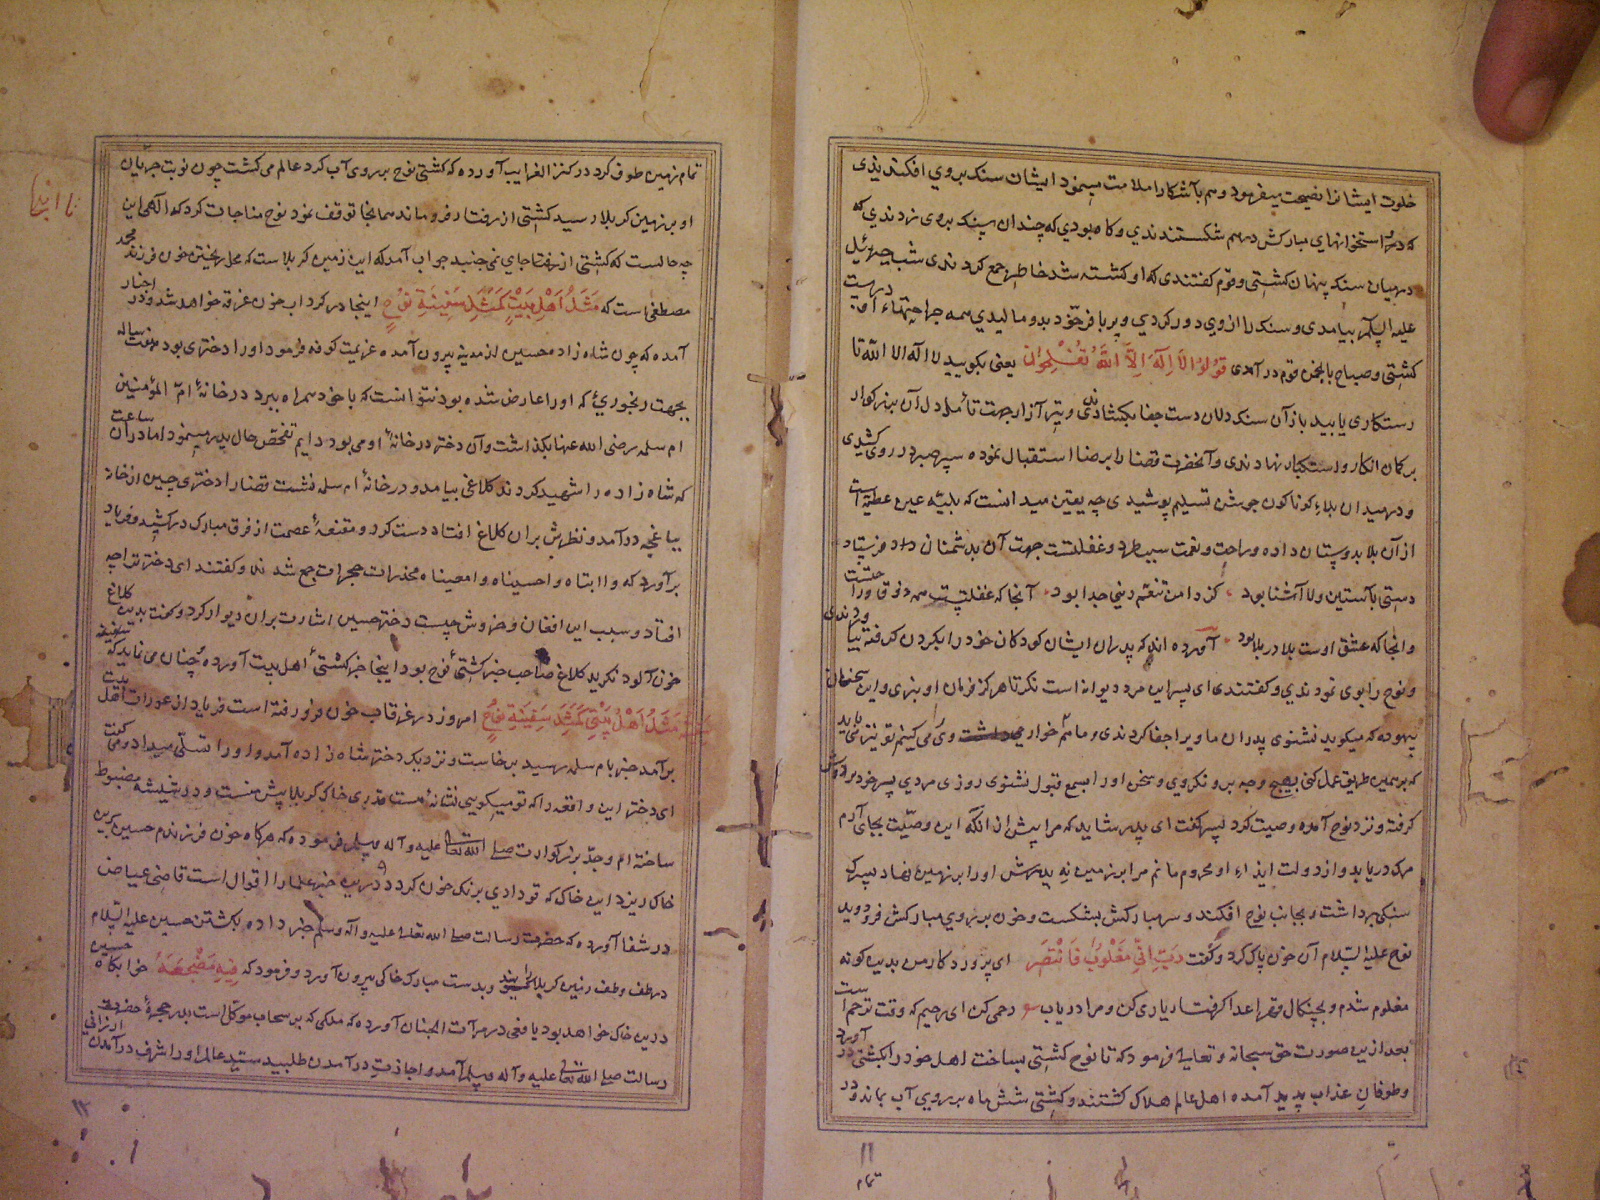 خلوت ایشانرا نصیحت میفرمود و هم بآشکارا ملامت مینمود ایشان سنک بروی افکندندی
که درو استخوانهای مبارکش درهم شکستندی و کاه بودی که چندان سنک بروی زدندی که
درمیان سنک پنهان کشتی و قوم کفتندی که او کشته شد خاطر جمع کردندی شب جبرئیل
علیه السلام بیامدی و سنک را از وی دور کردی و پر بافر خود بدو مالیدی همه جراحتهاء او درست
کشتی و صباح بانجمن قوم در آمدی قولوا لا اله الا الله تفلحوا یعنی بکویید لا اله الا الله تا
رستکاری یابید باز آن سنک دلان دست جفا بکشادندی و تیر آزار جهت تأمل دل آن بزرکوار
بر کمان انکار و استکبار نهادندی و آنحضرت قضا را برضا استقبال نموده سپر صبر در روی کشیدی
و در میدان بلاء کوناکون جوشن تسلیم پوشیدی چه یقین میدانست که بلیه عین عطیه است
از آن بلا بدوستان داده و راحت و نعمت سبب طرد و غفلتست جهت آن بدشمنان داد و فرستاد
دستی بآستین ولا آشنا بود کز دامن تنعم دنیی جدا بود آنجا که غفلتست همه ذوق و راحتست
وانجا که عشق اوست بلا در بلا بود آورده اند که پدران ایشان کودکان خود را بکردن کرفته بیاوردندی
و نوح را بوی نمودندی و کفتندی ای پسر این مرد دیوانه است نکر تا هرکز فرمان او نبری و این سخنان
بیهوده که میکوید نشنوی پدران ما ویرا جفا کردندی و ما هم خوار می داشت وی می کنیم تو نیز می باید
که بر همین طریق عمل کنی بهیچ وجه برو نکروی و سخن او را بسمع قبول نشنوی روزی مردی پسر خود بردوش
کرفته و نزد نوح آمده وصیت کرد پسر کفت ای پدر شاید که مرا پیش از انکه این وصیت بجای آرم
مرک دریابد و از دولت ایذاء او محروم مانم مرا بر زمین نه پدرش او را بر زمین نهاد پسرک
سنکی برداشت و بجانب نوح افکند و سر مبارکش بشکست و خون بر روی مبارکش فرو دوید
نوح علیه السلام آن خون پاک کرد و کفت رب انی مغلوب فانتصر ای پروردکار من بدین کونه
مغلوم شدم و بچنکال قهر اعدا کرفتار یاری کن و مرا دریاب رحمی کن ای رحیم که وقت ترحم است
بعد از ین صورت حق سبحانه و تعالی فرمود که تا نوح کشتی بساخت اهل خود را بکشتی در آورد
و طوفان عذاب پدید آمده اهل عالم هلاک کشتند و کشتی شش ماه بر روی آب بماند و در
۱۱
تمام
تمام زمین طوف کرد در کنز الغرایب آورده که کشتی نوح بر روی آب کرد عالم می کشت چون نوبت جریان
او بر زمین کربلا رسید کشتی از رفتار فرو ماند همانجا توقف نمود نوح مناجات کرد که الهی این
چه حالست که کشتی از رفتا جای نمی جنبد جواب آمد که این زمین کربلا است که محل ریختن خون فرزند محمد
مصطفی است که مثل اهل بیتی کمثل سفینة نوح اینجا در کرداب خون غرقه خواهد شد و در اخبار
آمده که چون شاه زاده حسین از مدینه بیرون آمده عزیمت کوفه فرمود او را دختری بود هفت ساله
بجهت رنجوری که او را عارض شده بود نتوانست که با خود همراه ببرد در خانهٔ ام المؤمنین
ام سلمه رضی الله عنها بکذاشت و آن دختر در خانهٔ او می بود دایم تفحص حال پدر مینمود اما در ان ساعت
که شاه زاده را شهید کردند کلاغی بیامد و در خانهٔ ام سلمه نشست قضا را دختر حسین از خانه
بباغچه در آمد و نظرش بران کلاغ افتاد دست کرد و مقنعهٔ عصمت از فرق مبارک در کشید و فریاد
بر آورد که وا ابتاه وا حسیناه وا معیناه مخدرات حجرات جمع شدند و کفتند ای دختر ترا چه
افتاد و سبب این افغان و خروش چیست دختر حسین اشارت بران دیوار کرد و کفت بدین کلاغ
خون آلود نکرید کلاغ صاحب خبر کشتی نوح بود اینجا خبر کشتی اهل بیت آورده چنان می نماید که سفینه
مثل اهل بیتی کمثل سفینة نوح امروز در غرقاب خون فرو رفته است فریاد از عورات اهل بیت
بر آمد خبر بام سلمه رسید برخاست و نزدیک دختر شاه زاده آمد و او را تسلی میداد و می کفت
ای دختر این واقعه را که تو میکویی نشانهٔ هست قدری خاک کربلا پیش منست و در شیشه مضبوط
ساخته ام و جد بزرکوارت صلی الله تعالی علیه و آله وسلم فرموده که هرکاه خون فرزندم حسین برین
خاک ریزد این خاک که تو دادی برنک خون کردد و درین خبر علما را اقوال است قاضی عیاض
در شفا آورده که حضرت رسالت صلی الله تعالی علیه و آله وسلم خبر داده بکشتن حسین علیه السلام
در طف و طف زمین کربلا را کویند و بدست مبارک خاکی بیرون آورد و فرمود که فیه مضجعه خوابکاه حسین
درین خاک خواهد بود یافعی در مرآت الجنان آورده که ملکی که بر سحاب موکل است بدر حجرهٔ حضرت
رسالت صلی الله تعالی علیه و آله وسلم آمد و اجازت در آمدن طلبید سید عالم او را شرف در آمدن ارزانی
۱۲